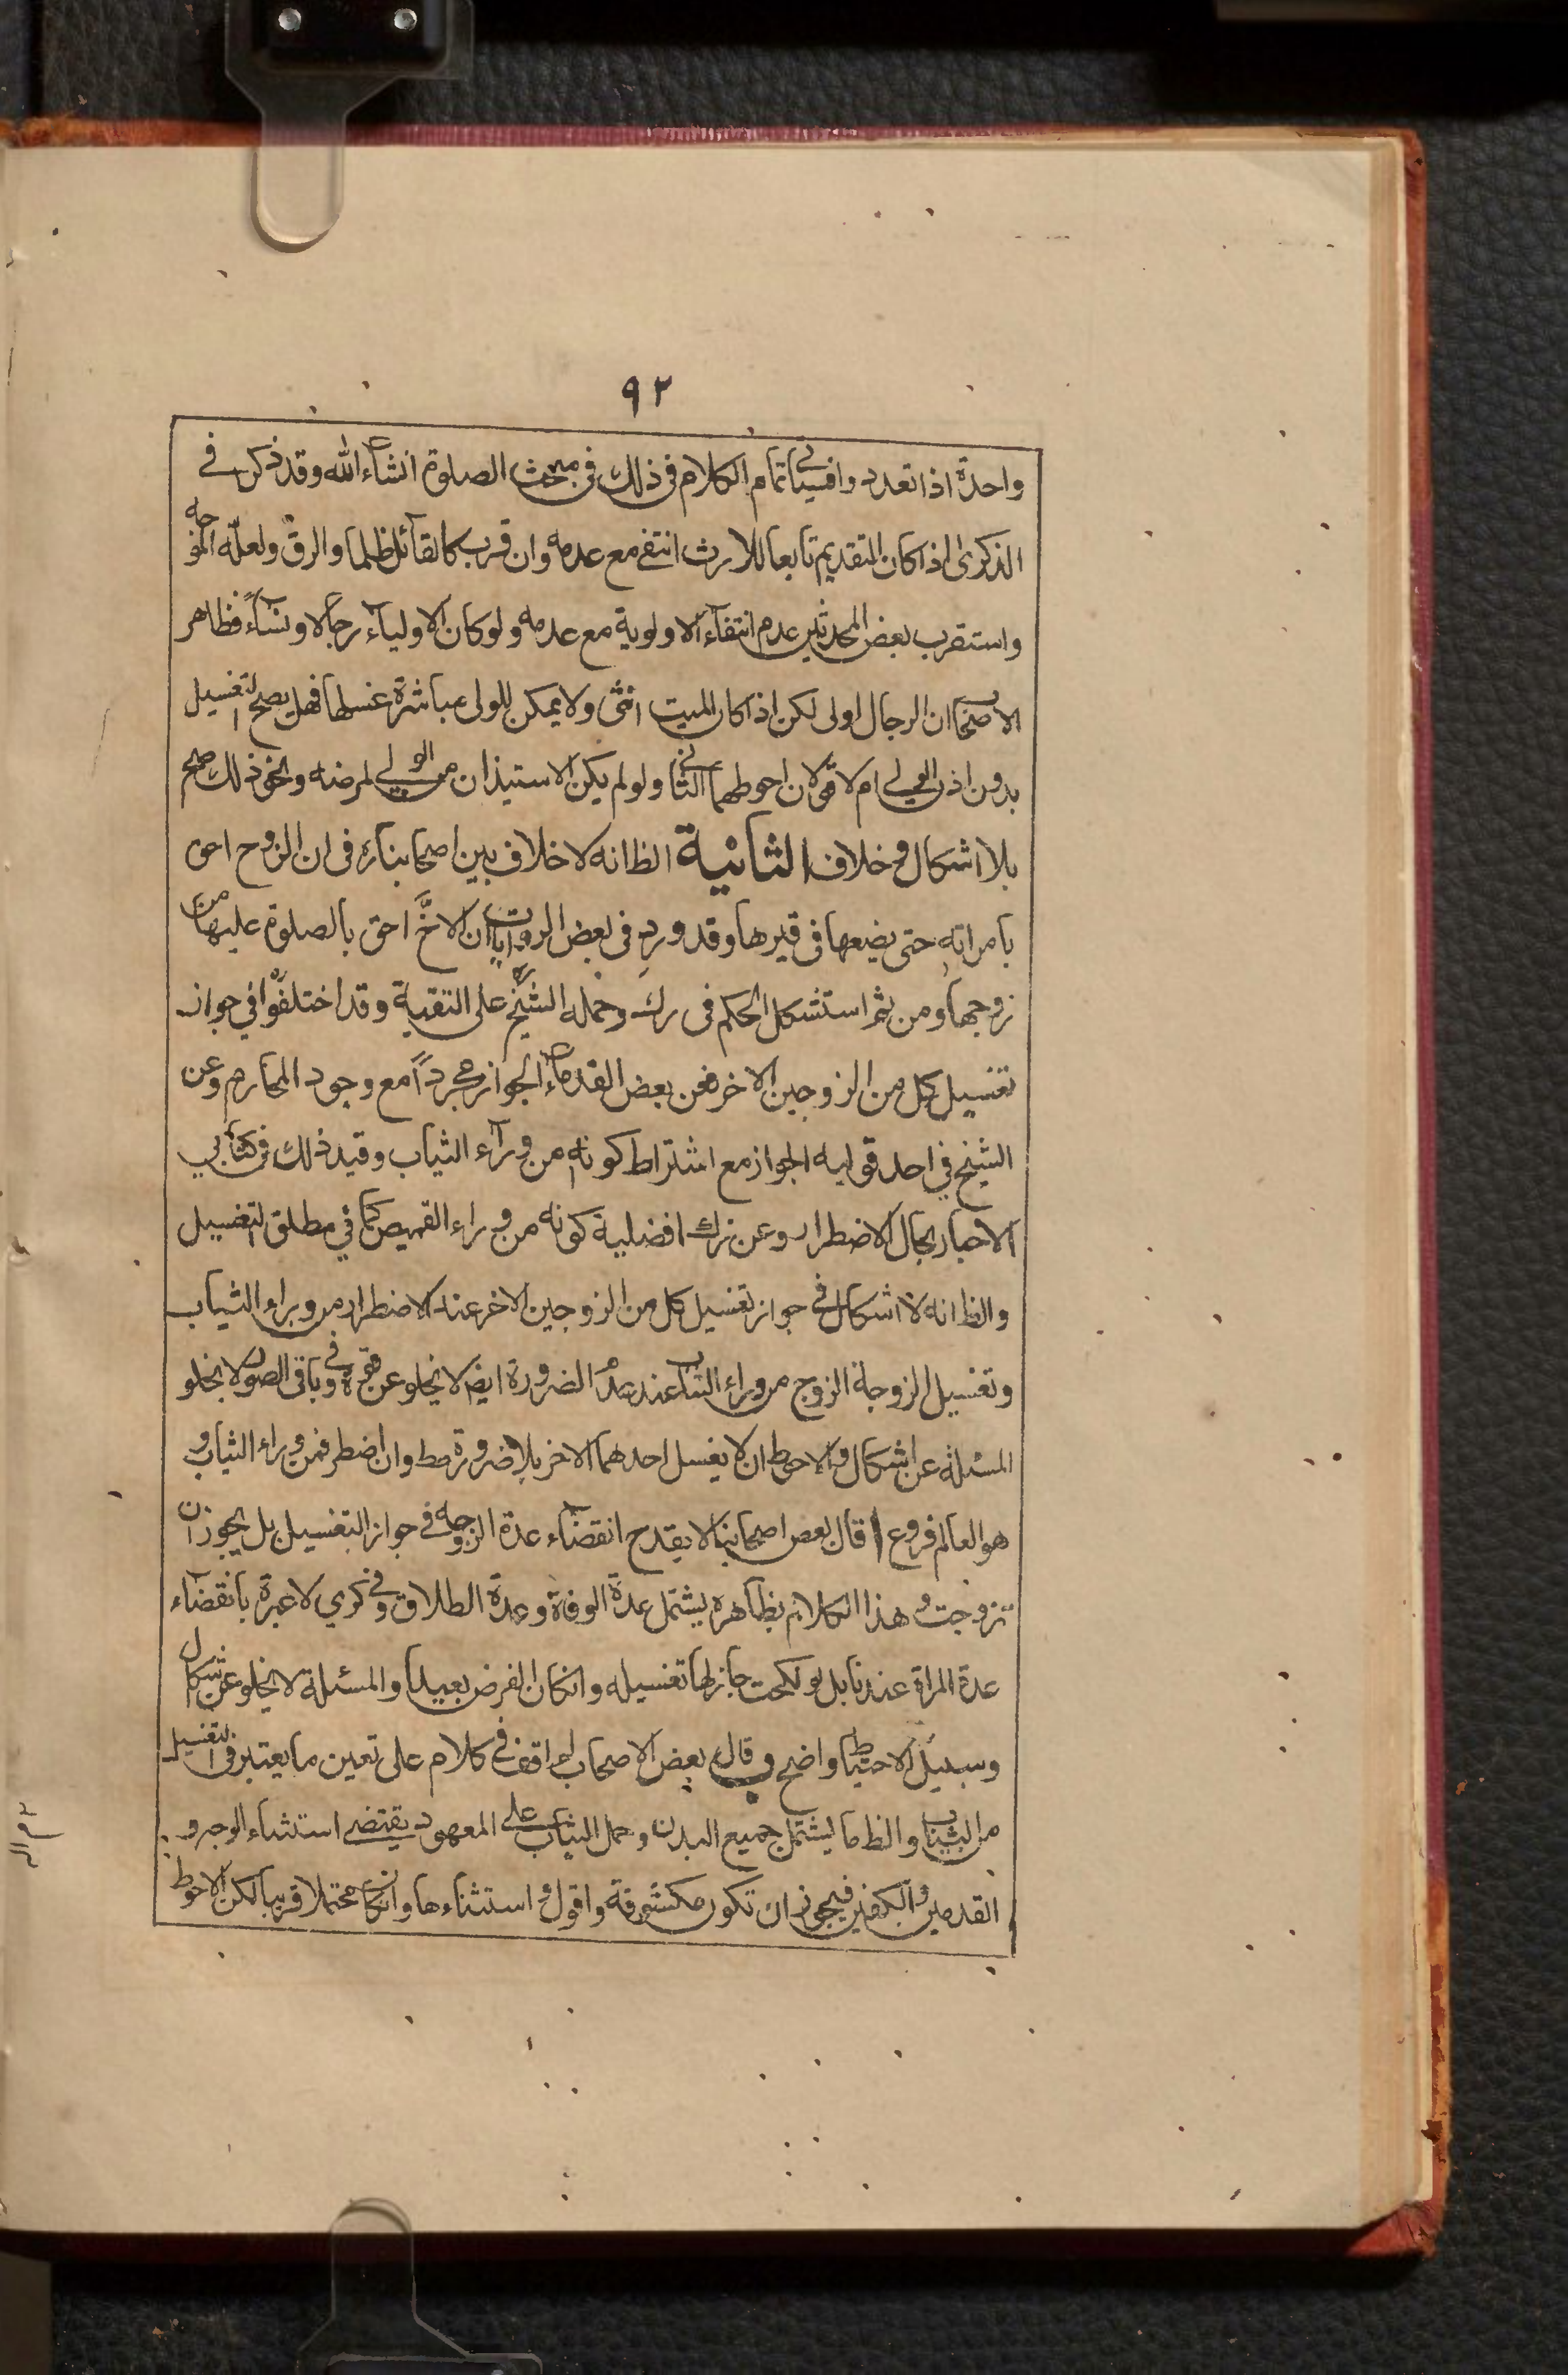 ٩٢
واحدة اذا تعدد وافسياتى تمام الكلام فى ذلك فى مبحث الصلوة انشاء الله وقد ذكر فے
الذكرى اذا كان التقديم تابعا للارث انتفے مع عدمه وان قرب كالقاتل ظلما والرق ولعله الموجه
واستقرب بعض المحدثين عدم انتفاء الاولوية مع عدمه ولو كان الاولياء رجالا ونساء فظاهر
الاصحاب ان الرجال اولى لكن اذا كان الميت انثى ولا يمكن للولى مباشرة غسلها فهل يصح التغسيل
بدون اذن الولے ام لا قولان احوطهما الثانى ولو لم يكن الاستيذان من الولے لمرضه ونحو ذلك صح
بلا اشكال وخلاف الثانية الظ انه لا خلاف بين اصحابنا ره فى ان الزوج احق
بامراته حتى يضعها فى قبرها وقد ورد فى بعض الروايات ان الاخ احق بالصلوة عليها من
زوجها ومن ثم استشكل الحكم فى رك وحمله الشيخ على التقية وقد اختلفوا في جواز
تغسيل كل من الزوجين الاخر فعن بعض القدماء الجواز مجرداً مع وجود المحارم وعن
الشيخ في احد قوليه الجواز مع اشتراط كونه من وراء الثياب وقيد ذلك فى كتابي
الاخبار بحال الاضطرار وعن رك افضلية كونه من وراء القميص كما في مطلق التغسيل
والظ انه لا اشكال فے جواز تغسيل كل من الزوجين الاخر عند الاضطرار من وراء الثياب
وتغسيل الزوجة الزوج من وراء الثياب عند عدم الضرورة ايض لا يخلو عن قوة وفى باقى الصور لا يخلو
المسئلة عن اشكال والاحوط ان لا يغسل احدهما الاخر بلا ضرورة مط وان اضطر فمن وراء الثياب و
هو العالم فروع ا قال بعض اصحابنا لا يقدح انقضاء عدة الزوجه فے جواز التغسيل بل يجوز ان
تزوجت وهذا الكلام بظاهره يشتمل عدة الوفاة وعدة الطلاق وفى كري لا عبرة بانقضاء
عدة المراة عندنا بل لو نكحت جاز لها تغسيله وانكان الفرض بعيدا والمسئلة لا يخلو عن اشكال
وسبيل الاحتياط واضح وقال بعض الاصحاب لم اقف فے كلام على تعين ما يعتبر فى التغسيل
من الثياب والظ ما يشتمل جميع البدن وحمل الثياب على المعهود يقتضے استثناء الوجه و
القدمين والكفين فيجوز ان تكون مكشوفة واقول استثناءها وانكان محتملا قريبا لكن الاحوط